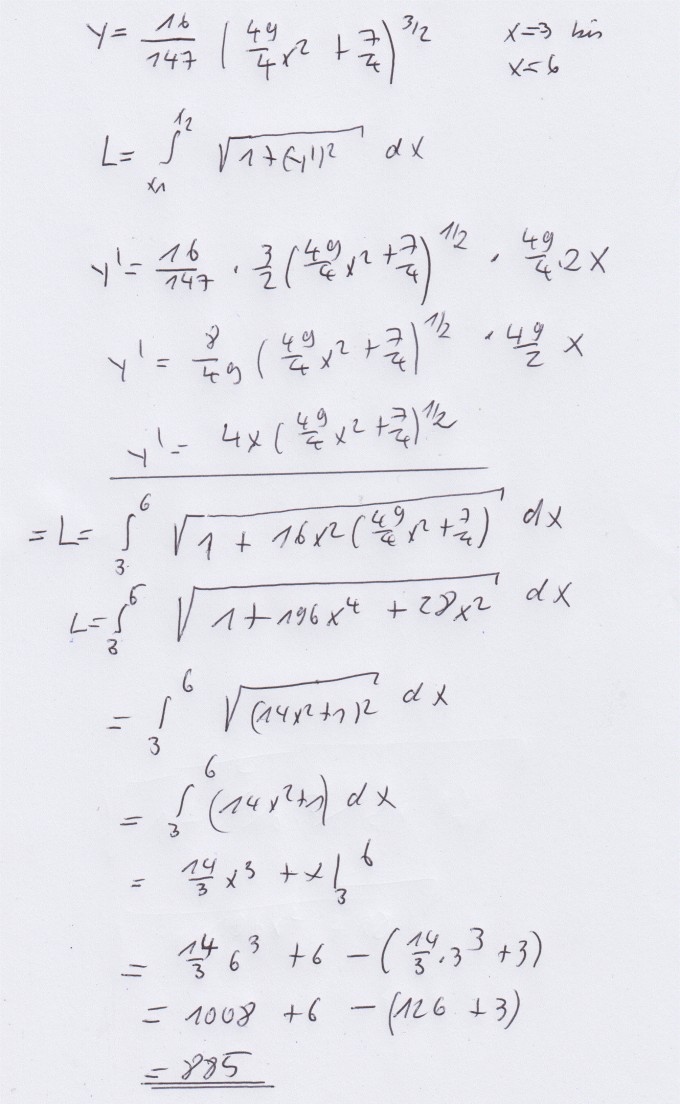 y = 16/147 (49/4 x² + 7/4)^3/2 x=3 bis
x=6
L = ∫_x1^12 √(1+(y')²) dx
y' = 16/147 · 3/2 (49/4 x² + 7/4)^1/2 · 49/4 · 2x
y' = 8/49 (49/4 x² + 7/4)^1/2 · 49/2 x
y' = 4x (49/4 x² + 7/4)^1/2
= L = ∫_3^6 √(1 + 16x² (49/4 x² + 7/4)) dx
L = ∫_3^6 √(1 + 196x⁴ + 28x²) dx
= ∫_3^6 √((14x²+1)²) dx
= ∫_3^6 (14x²+1) dx
= 14/3 x³ + x |_3^6
= 14/3 6³ + 6 - (14/3 · 3³ + 3)
= 1008 + 6 - (126 + 3)
= 885